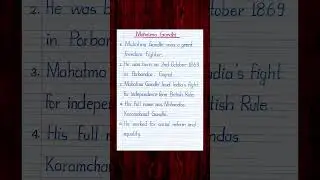 Mahatma Gandhi
1. Mahatma Gandhi was a great
freedom fighter.
2. He was born on 2nd October 1869
in Porbandar, Gujrat.
3. Mahatma Gandhi lead India's fight
for independence from British Rule.
4. His full name was Mohandas
Karamchand Gandhi.
5. He worked for social reform and
equality.
2. He was b
ctober 1869
in Porban
3. Mahatma
dia's fight
for indepen
British Rule.
4. His Full n
das
Karamchan